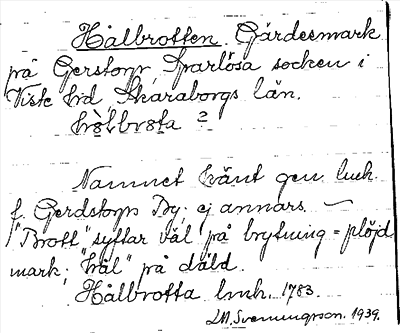 Hålbrotten. Gärdesmark
på Gerstorp, Sparlösa socken i
Viste hd, Skaraborgs län.
hòlbrɷta ?
Namnet känt gen. lmh.
f. Gerdstorps By. ej annars. —
"Brott" syftar väl på brytning = plöjd
mark; "hål" på däld.
Hålbrotta lmh. 1783.
LM. Svenungsson. 1939.